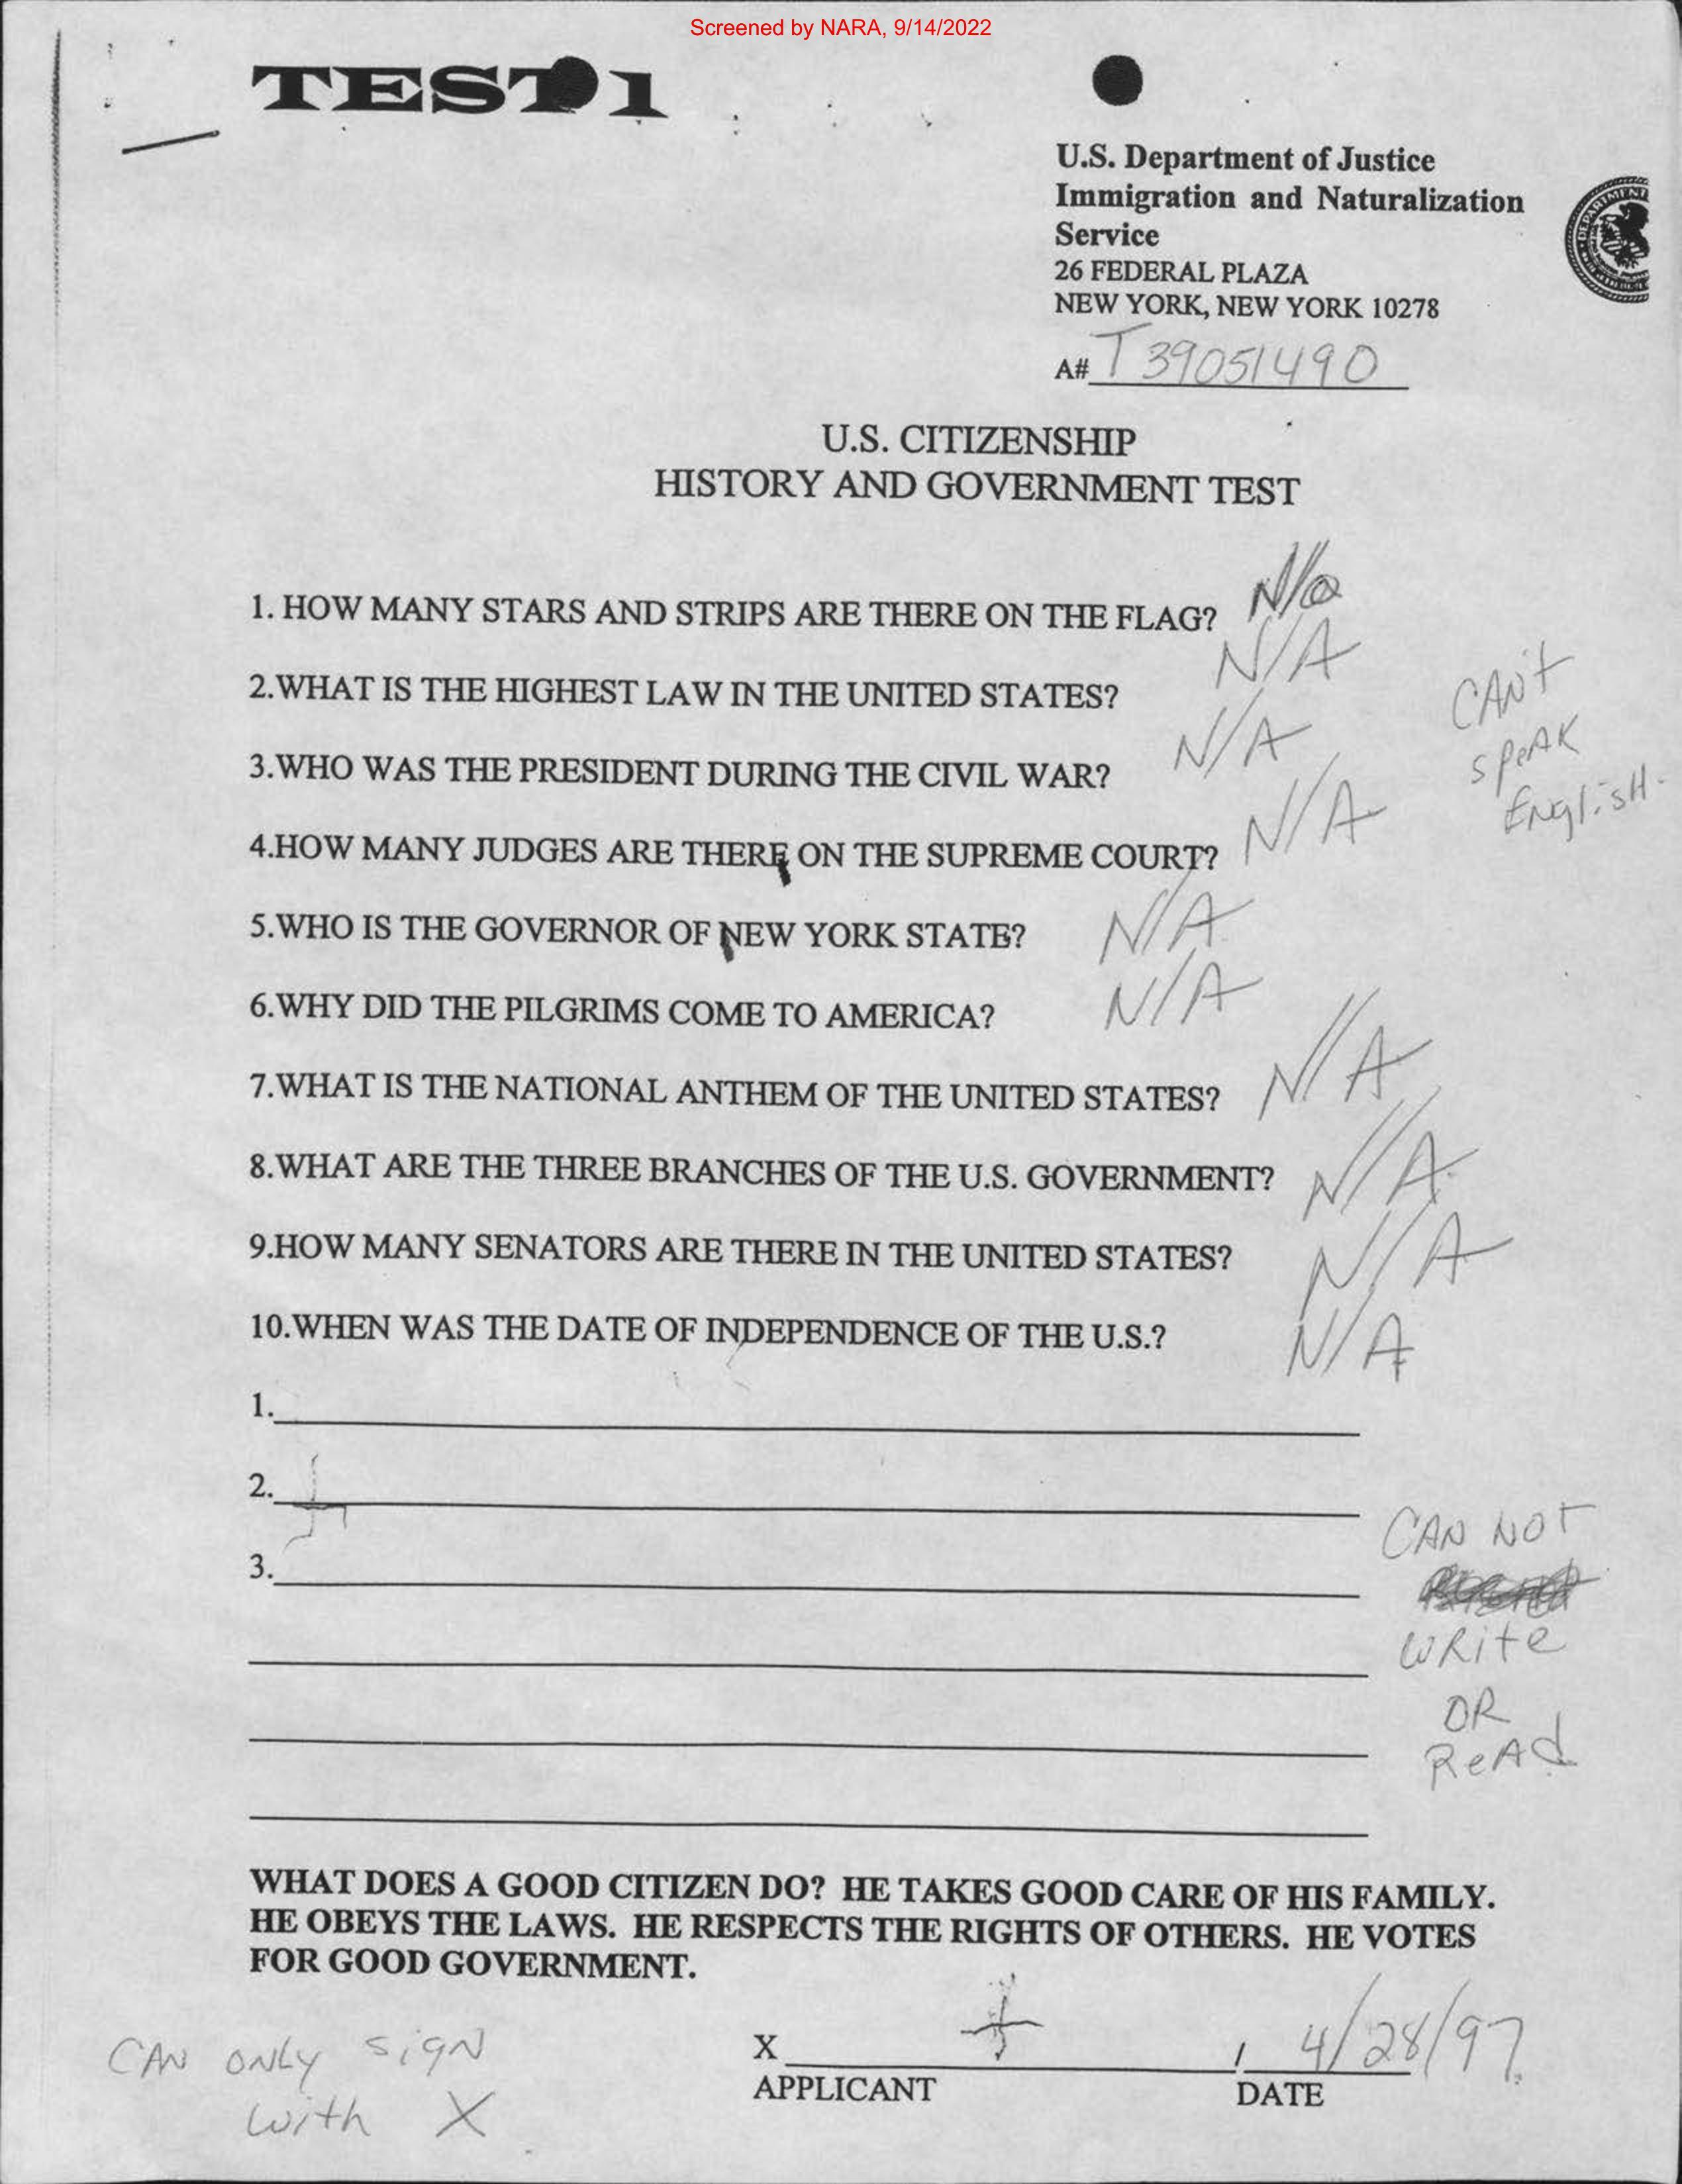 Screened by NARA, 9/14/2022
TEST 1
U.S. Department of Justice
Immigration and Naturalization
Service
26 FEDERAL PLAZA
NEW YORK, NEW YORK 10278
A# T 39051490
U.S. CITIZENSHIP
HISTORY AND GOVERNMENT TEST
1. HOW MANY STARS AND STRIPS ARE THERE ON THE FLAG? N/a
2.WHAT IS THE HIGHEST LAW IN THE UNITED STATES? N/A
3.WHO WAS THE PRESIDENT DURING THE CIVIL WAR? N/A
CAN't
speAK
ENgLisH.
4.HOW MANY JUDGES ARE THERE ON THE SUPREME COURT? N/A
5.WHO IS THE GOVERNOR OF NEW YORK STATE? N/A
6.WHY DID THE PILGRIMS COME TO AMERICA? N/A
7.WHAT IS THE NATIONAL ANTHEM OF THE UNITED STATES? N/A
8.WHAT ARE THE THREE BRANCHES OF THE U.S. GOVERNMENT? N/A
9.HOW MANY SENATORS ARE THERE IN THE UNITED STATES? N/A
10.WHEN WAS THE DATE OF INDEPENDENCE OF THE U.S.? N/A
1.
2.
3.
CAN NOT
WRite
OR
ReAd
WHAT DOES A GOOD CITIZEN DO? HE TAKES GOOD CARE OF HIS FAMILY.
HE OBEYS THE LAWS. HE RESPECTS THE RIGHTS OF OTHERS. HE VOTES
FOR GOOD GOVERNMENT.
CAN ONLY sigN
with X
X , 4/28/97
APPLICANT DATE